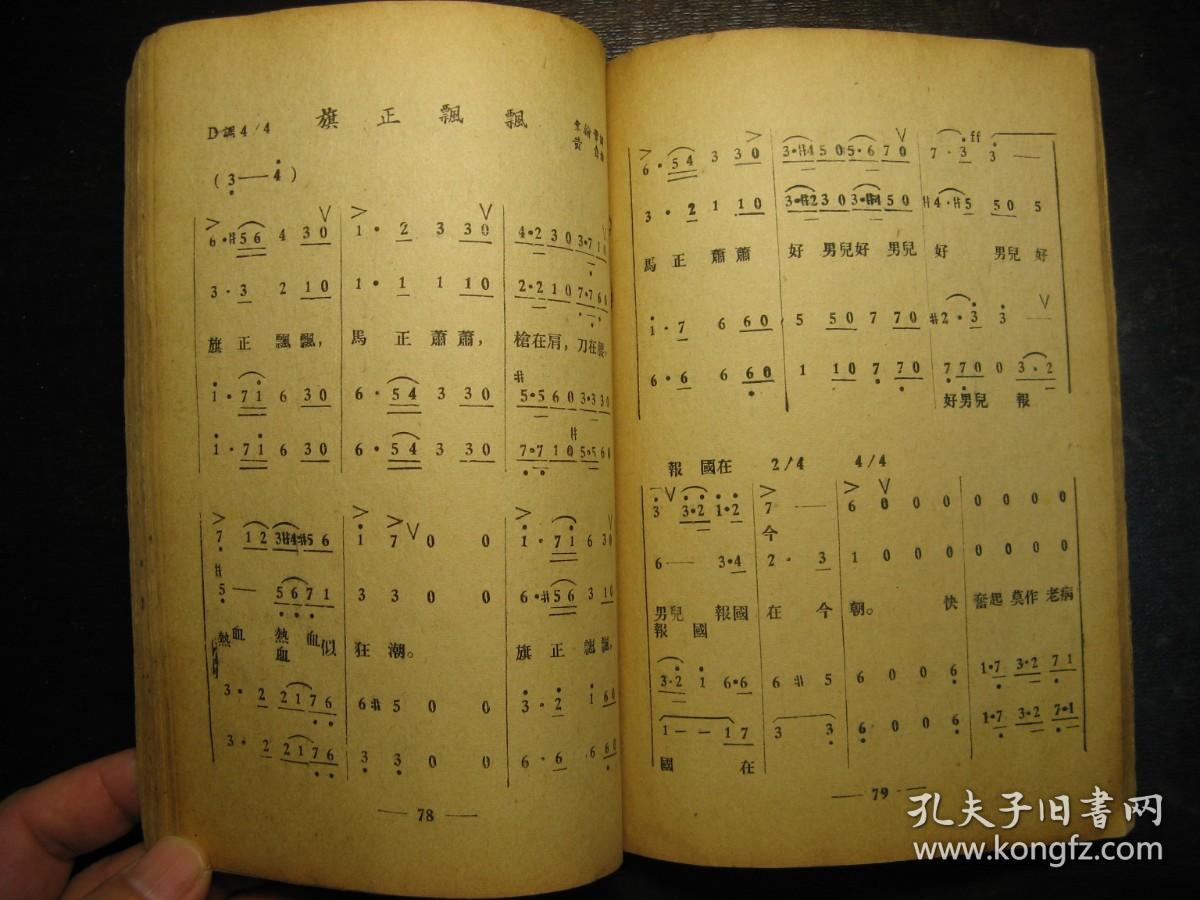 旗正飄飄
D調4/4
黃自
(3——4)
6·#56 4 30 1· 2 3 30 4·2 30 3·71
3·3 2 10 1· 1 1 10 2·2 10 7·76
旗 正 飄飄, 馬 正 蕭蕭, 槍在肩, 刀在腰,
1·71 6 30 6·54 3 30 5·5 60 3·3 30
1·71 6 30 6·54 3 30 7·7 10 5·5 60
7 12 3#4#56 1 7 0 0 1·71 6 30
#5· 5671 3 3 0 0 6·#56 3 10
熱血 熱血似 狂 潮。 旗 正 飄飄,
血
3·2 2176 6#5 0 0 3·2 1 60
3·2 2176 3 3 0 0 6·6 6 60
— 78 —
6·54 3 30 3·#450 #5·670 7·3 3 — ff
3·2 1 10 3·#230 3·#450 #4·#5 50 5
馬 正 蕭蕭 好 男兒好 男兒 好 男兒好
1·7 6 60 5 50 7 70 #2·3 3 —
6·6 6 60 1 10 7 70 7 70 0 3·2
好男兒 報
報 國在 2/4 4/4
3 3·2 1·2 7 —— 6 0 0 0 0 0 0 0
今
6 —— 3·4 2· 3 1 0 0 0 0 0 0 0
男兒 報國 在 今 朝。 快 奮起 莫作 老病
報 國
3·2 1 6·6 6 #5 6 0 0 6 1·7 3·2 71
1 — — 17 3 3 6 0 0 6 1·7 3·2 7·1
國 在
— 79 —
孔夫子旧書网
www.kongfz.com